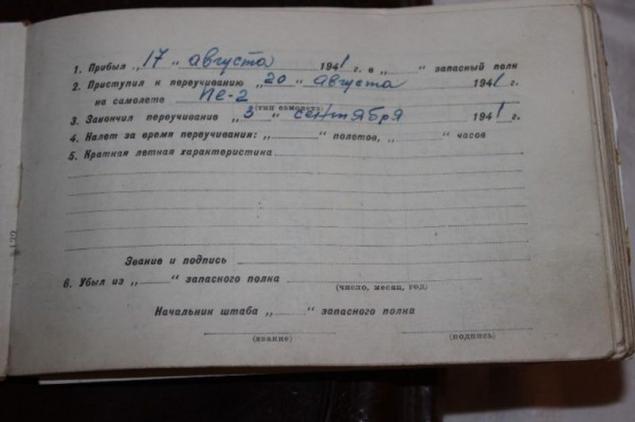 1. Прибыл „17“ августа 1941 г. в „ “ запасный полк
2. Приступил к переучиванию „20“ августа 1941 г.
на самолете Пе-2
(тип самолета)
3. Закончил переучивание „3“ сентября 1941 г.
4. Налет за время переучивания: „ “ полетов, „ “ часов
5. Краткая летная характеристика
Звание и подпись
6. Убыл из „ “ запасного полка
(число, месяц, год)
Начальник штаба „ “ запасного полка
(звание) (подпись)